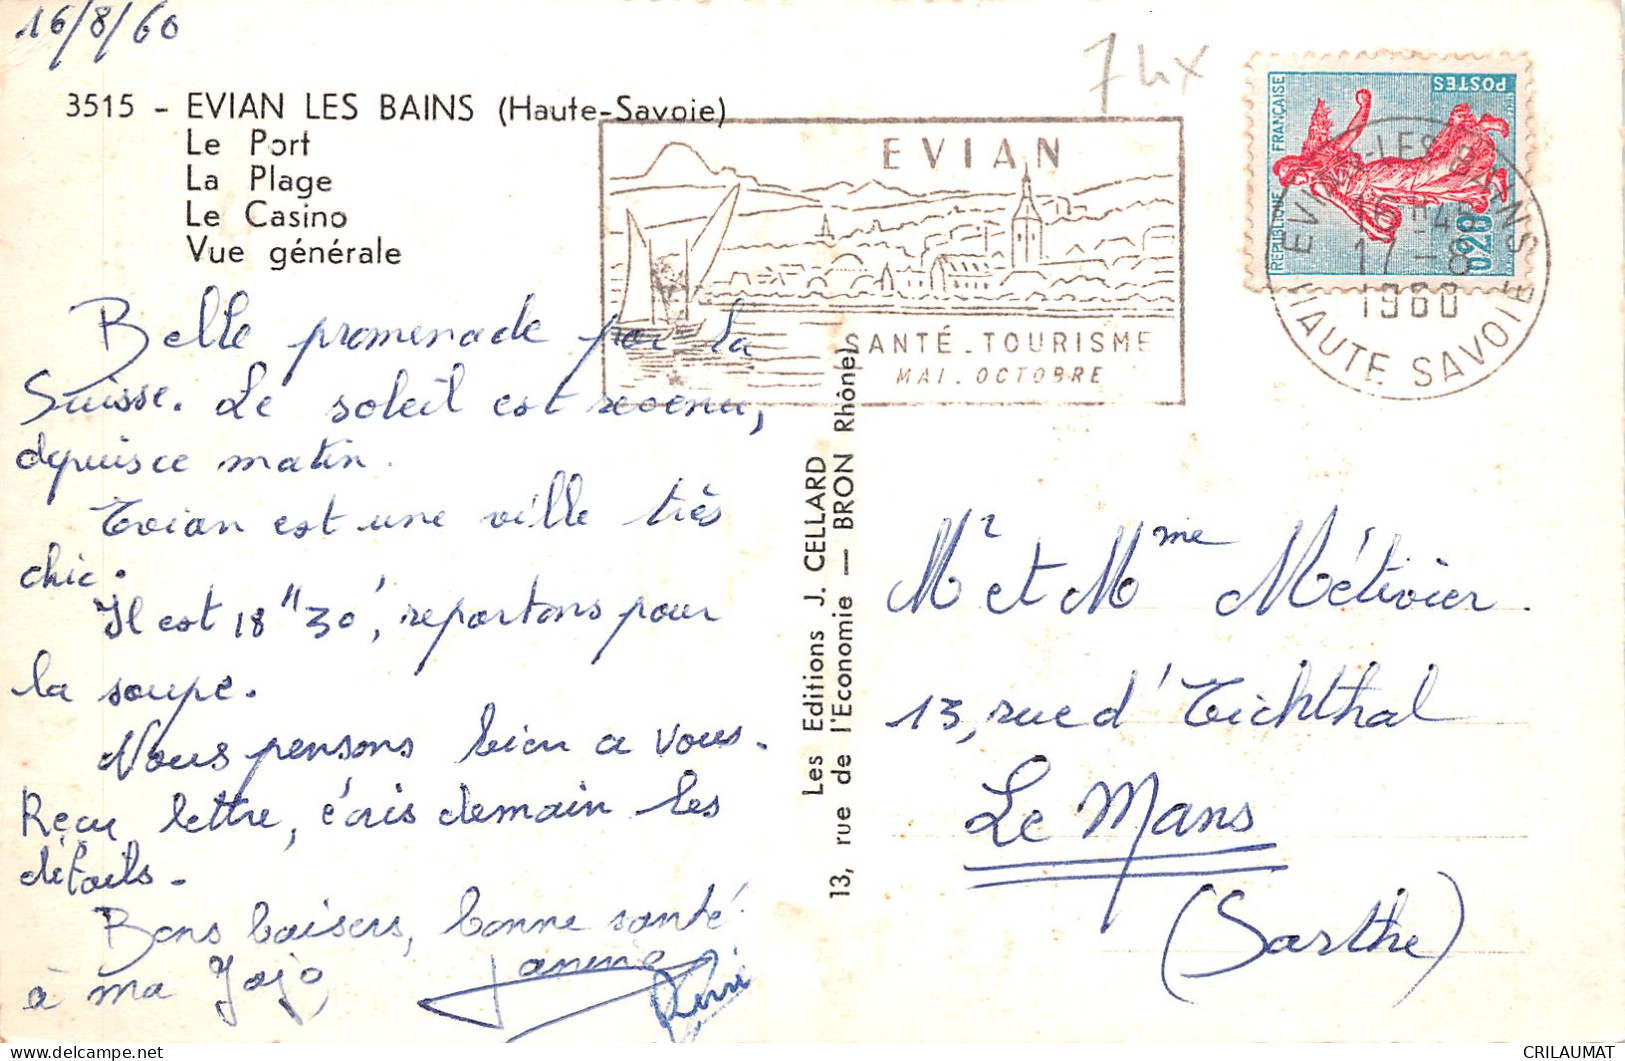 16/8/60
74x
3515 - EVIAN LES BAINS (Haute-Savoie)
Le Port
La Plage
Le Casino
Vue générale
EVIAN
SANTÉ - TOURISME
MAI . OCTOBRE
REPUBLIQUE FRANÇAISE
POSTES
0,20
EVIAN-LES-BAINS
16H45
17 - 8
1960
HAUTE SAVOIE
Belle promenade par la
Suisse. Le soleil est revenu,
depuis ce matin.
Evian est une ville très
chic.
Il est 18 "30', repartons pour
la soupe.
Nous pensons bien a vous.
Reçu lettre, écris demain les
détails.
Bons baisers, bonne santé
à ma Jojo
Janine
Les Editions J. CELLARD
13, rue de l'Economie — BRON Rhône)
Mr et Mme Métivier.
13, rue d'Eichthal
Le Mans
(Sarthe)
CRILAUMAT